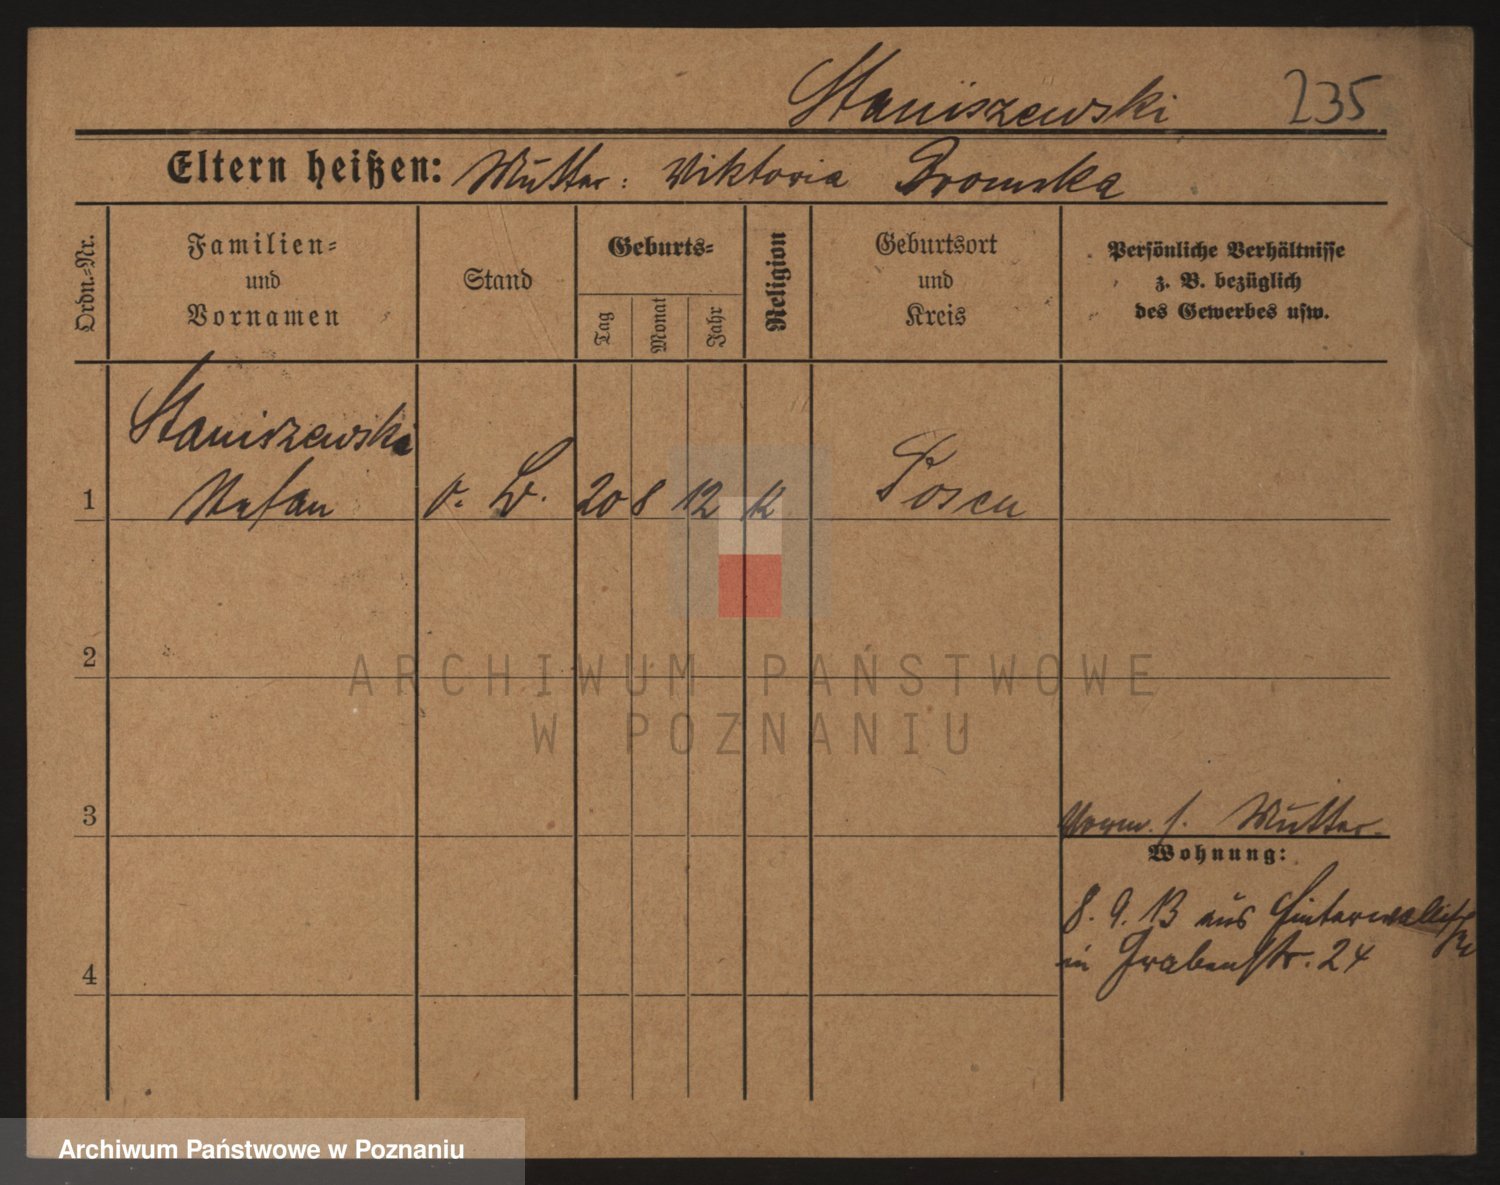 Staniszewski 235
Eltern heißen: Mutter: Viktoria
Ordn.-Nr.
Familien-
und
Vornamen
Stand
Geburts-
Tag
Monat
Jahr
Religion
Geburtsort
und
Kreis
Persönliche Verhältnisse
z. B. bezüglich
des Gewerbes usw.
Staniszewski
1 Stefan o. B. 20 8 12 K Posen
2
ARCHIWUM PAŃSTWOWE
W POZNANIU
3
Vorm. s. Mutter.
Wohnung:
8. 9. 13 aus
in Grabenstr. 24
4
Archiwum Państwowe w Poznaniu